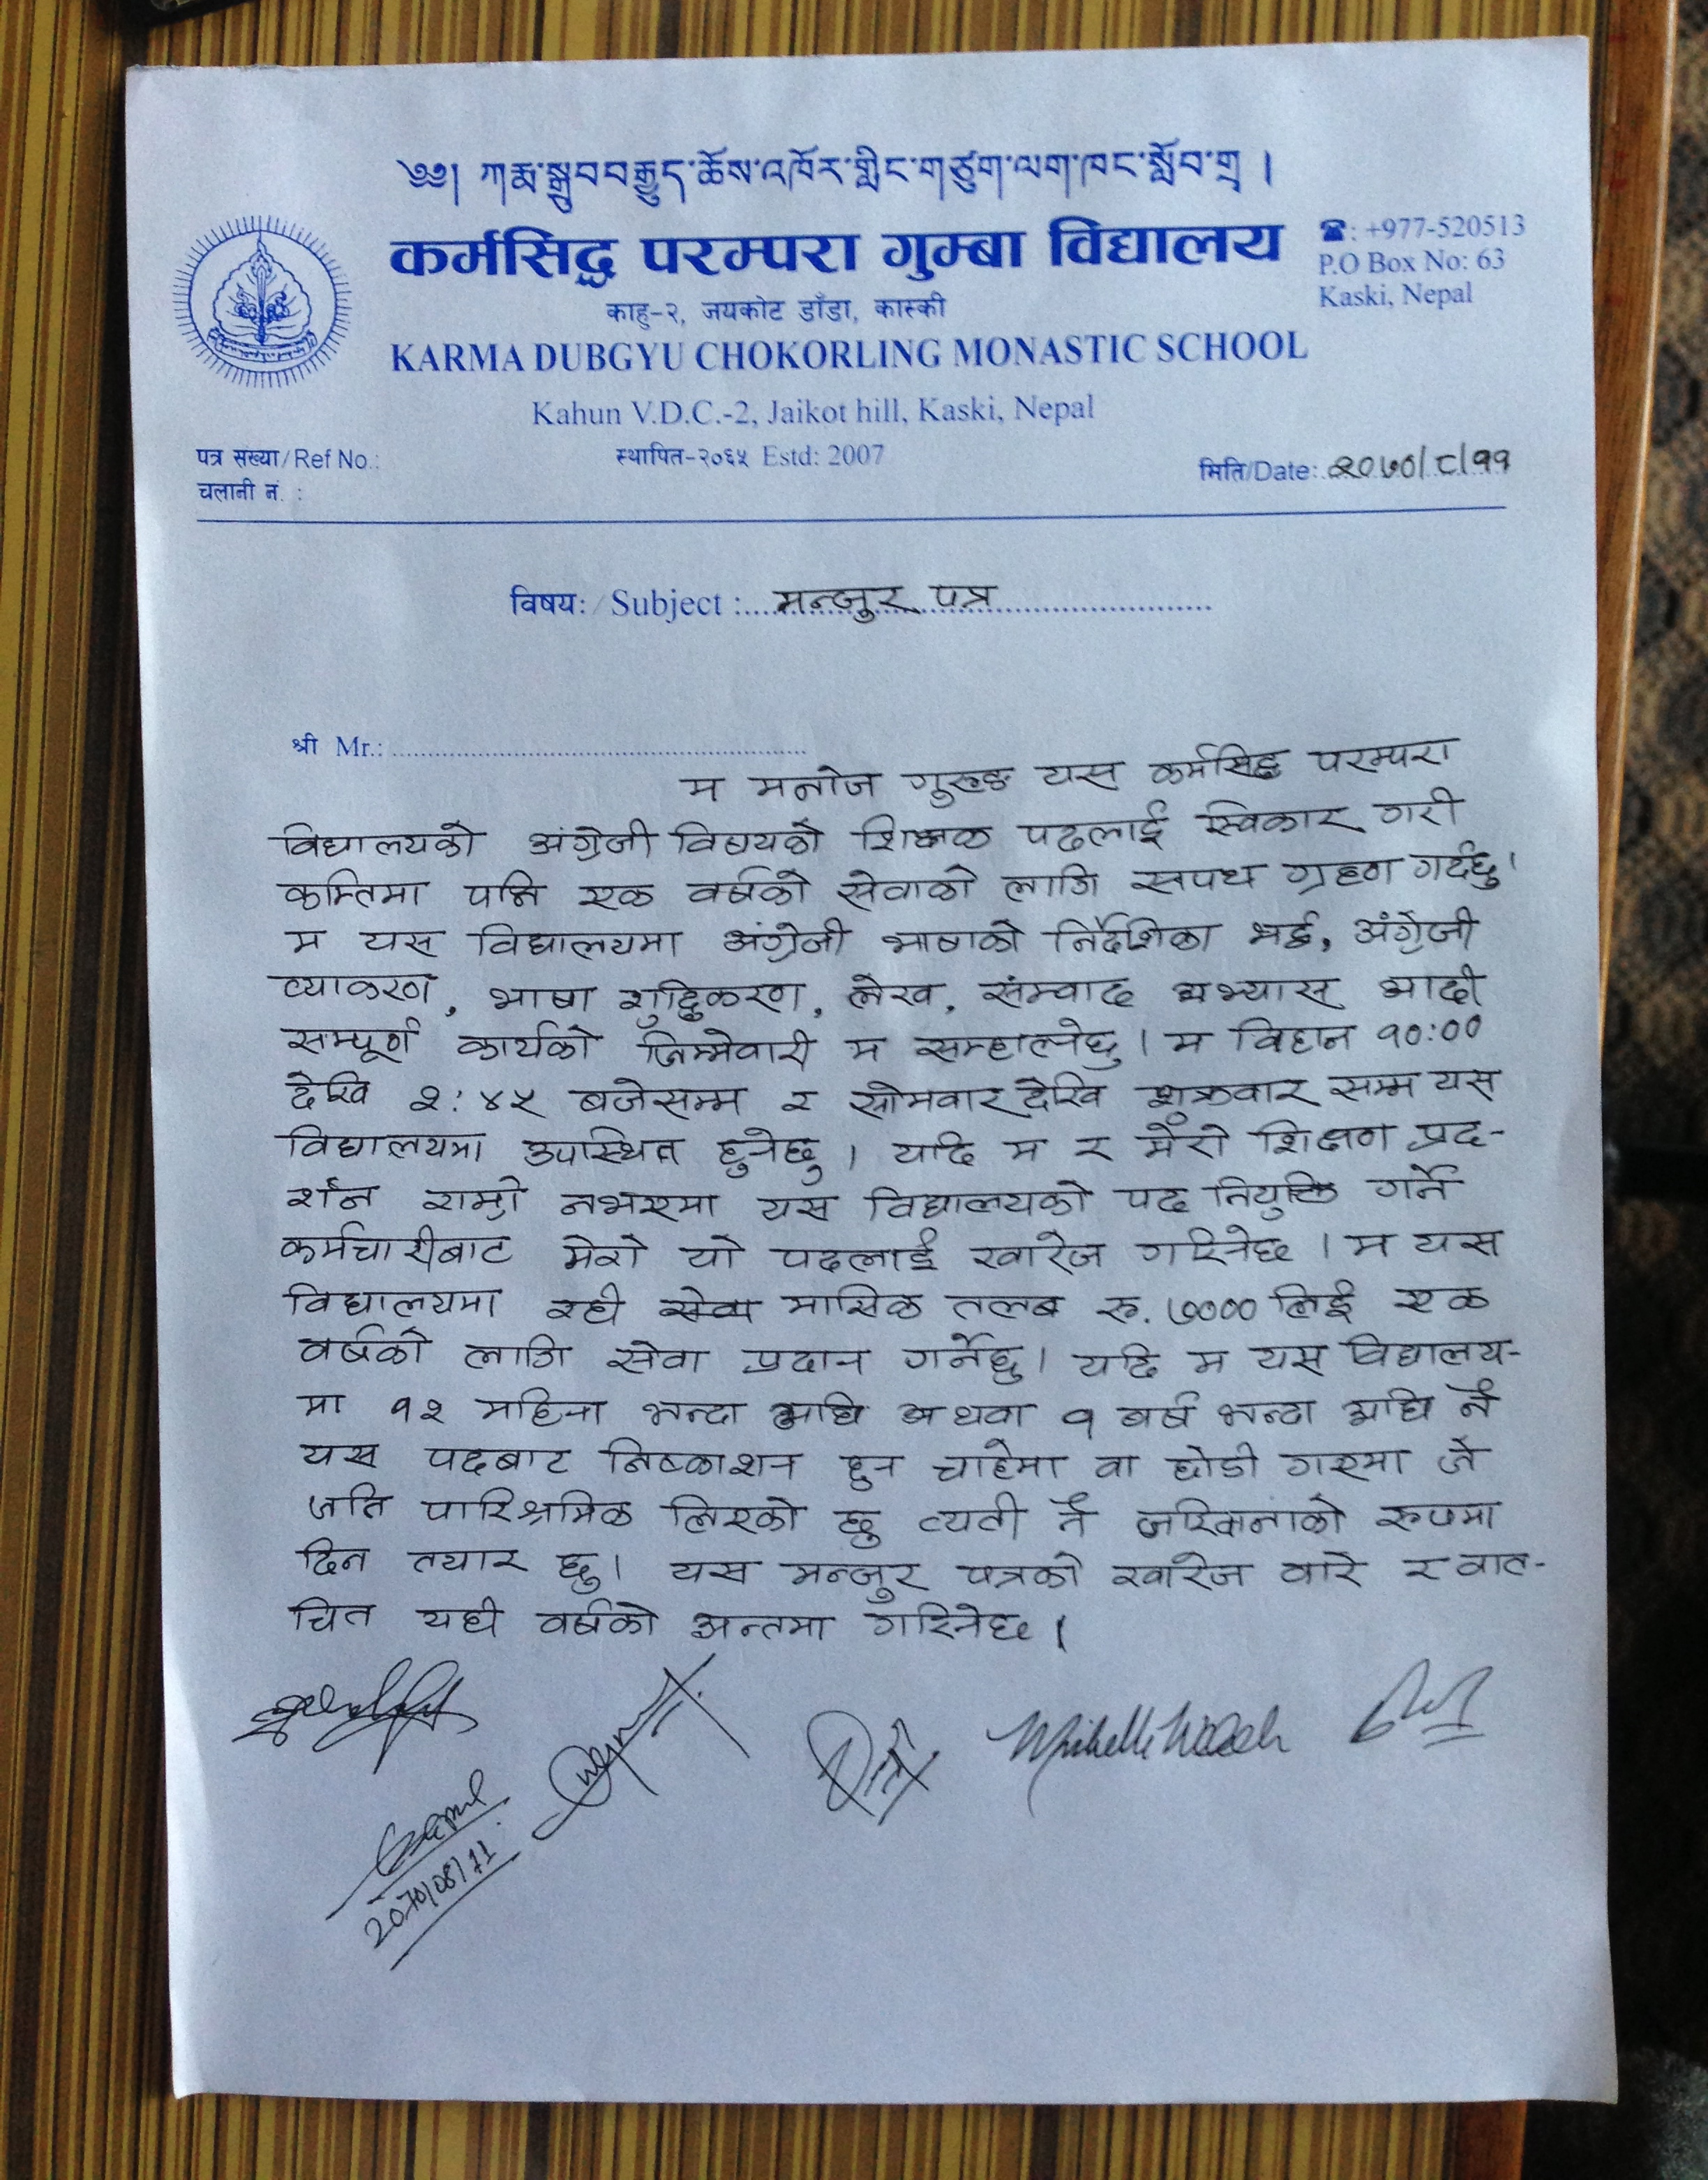 ༄༅། ཀརྨ་སྒྲུབ་བརྒྱུད་ཆོས་འཁོར་གླིང་གཙུག་ལག་ཁང་སློབ་གྲྭ །
कर्मसिद्ध परम्परा गुम्बा विद्यालय
☎: +977-520513
P.O Box No: 63
Kaski, Nepal
काहु-२, जयकोट डाँडा, कास्की
KARMA DUBGYU CHOKORLING MONASTIC SCHOOL
Kahun V.D.C.-2, Jaikot hill, Kaski, Nepal
पत्र संख्या/Ref No.:
स्थापित-२०६५ Estd: 2007
मिति/Date: २०७०/८/११
चलानी नं. :
विषय: / Subject : मन्जुर पत्र
श्री Mr.:
म मनोज गुरुङ यस कर्मसिद्ध परम्परा
विद्यालयको अंग्रेजी विषयको शिक्षक पदलाई स्विकार गरी
कम्तिमा पनि एक वर्षको सेवाको लागि सपथ ग्रहण गर्दछु।
म यस विद्यालयमा अंग्रेजी भाषाको निर्देशिका भई, अंग्रेजी
व्याकरण, भाषा शुद्धिकरण, लेख, संम्वाद अभ्यास आदी
सम्पूर्ण कार्यको जिम्मेवारी म सम्हाल्नेछु। म विहान १०:००
देखि २:४५ बजेसम्म र सोमवार देखि शुक्रवार सम्म यस
विद्यालयमा उपस्थित हुनेछु। यदि म र मेरो शिक्षण प्रद-
र्शन राम्रो नभएमा यस विद्यालयको पद नियुक्ति गर्ने
कर्मचारीबाट मेरो यो पदलाई खारेज गरिनेछ। म यस
विद्यालयमा रही सेवा मासिक तलब रु. ७००० लिई एक
वर्षको लागि सेवा प्रदान गर्नेछु। यदि म यस विद्यालय-
मा १२ महिना भन्दा अघि अथवा १ वर्ष भन्दा अघि नै
यस पदबाट निष्काशन हुन चाहेमा वा छोडी गएमा जे
जति पारिश्रमिक लिएको छु त्यती नै जरिवानाको रुपमा
दिन तयार छु। यस मन्जुर पत्रको खारेज वारे र वात-
चित यही वर्षको अन्तमा गरिनेछ।
2070/08/11